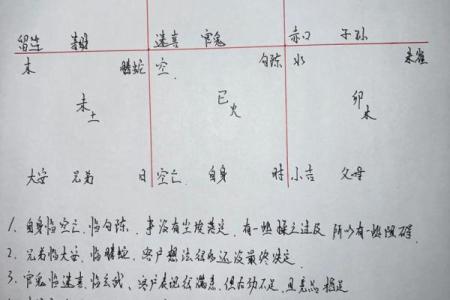 留连 妻财 速喜 官鬼 赤口 子孙
木 螣蛇 空 勾陈 水 朱雀
未土 巳火 卯木
大安 兄弟 日 空亡 自身 时 小吉 父母
1. 自身临空亡、临勾陈、事没有尘埃落定、有一些操之过及 所以有一些
2. 兄弟临大安、临螣蛇、客户想法 还没最终决定
3. 官鬼临速喜、临玄武、客户表现 满意、但 动不足、且竞品 定